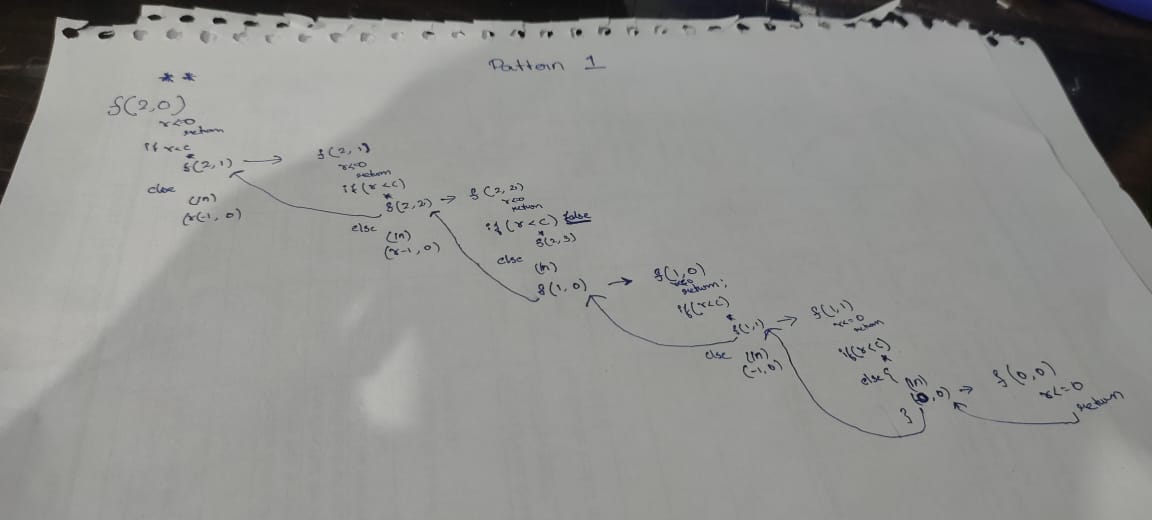 Pattern 1
**
f(2,0)
r<0
return
if r<c
*
f(2,1) →
else
(ln)
(r-1,0)
f(2,1)
r<=0
return
if(r<c)
*
f(2,2) →
else
(ln)
(r-1,0)
f(2,2)
r<0
return
if(r<c) false
*
f(2,3)
else
(ln)
f(1,0) →
f(1,0)
return;
if(r<c)
*
f(1,1) →
else (ln)
(-1,0)
f(1,1)
r<=0
return
if(r<c)
*
else{ (ln)
(0,0) →
}
f(0,0)
r<=0
return